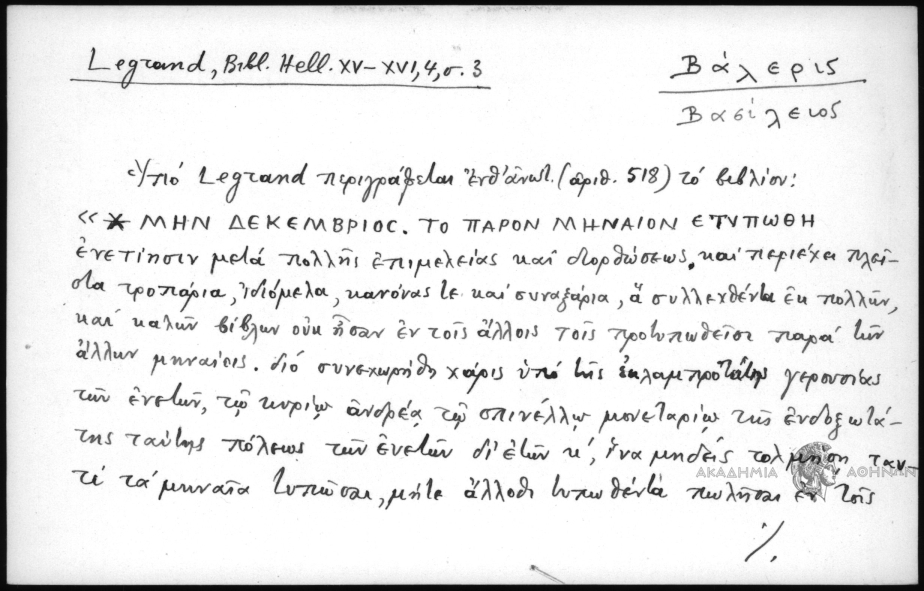 Legrand, Bibl. Hell. XV–XVI, 4, σ. 3
Βάλερις
Βασίλειος
Ὑπό Legrand περιγράφεται ἐνθ' ἀνωτ. (ἀριθ. 518) τό βιβλίον:
« ΜΗΝ ΔΕΚΕΜΒΡΙΟC. ΤΟ ΠΑΡΟΝ ΜΗΝΑΙΟΝ ΕΤΥΠΩΘΗ
ἐνετίησιν μετά πολλῆς ἐπιμελείας καί διορθώσεως, καί περιέχει πλεῖ-
στα τροπάρια, ἰδιόμελα, κανόνας τε καί συναξάρια, ἅ συλλεχθέντα ἐκ πολλῶν,
καί καλῶν βίβλων οὐκ ἦσαν ἐν τοῖς ἄλλοις τοῖς προτυπωθεῖσι παρά τῶν
ἄλλων μηναίοις. διό συνεχωρήθη χάρις ὑπό τῆς ἐκλαμπροτάτης γερουσίας
τῶν ἐνετῶν, τῷ κυρίῳ ἀνδρέᾳ τῷ σπινέλλῳ μονεταρίῳ τῆς ἐνδοξωτά-
της ταύτης πόλεως τῶν ἐνετῶν δι' ἐτῶν κ', ἵνα μηδείς τολμήσῃ ταυ
τί τά μηναῖα τυπῶσαι, μήτε ἄλλοθι τυπωθέντα πωλῆσαι ἐν τοῖς
./.
ΑΚΑΔΗΜΙΑ ΑΘΗΝΩΝ